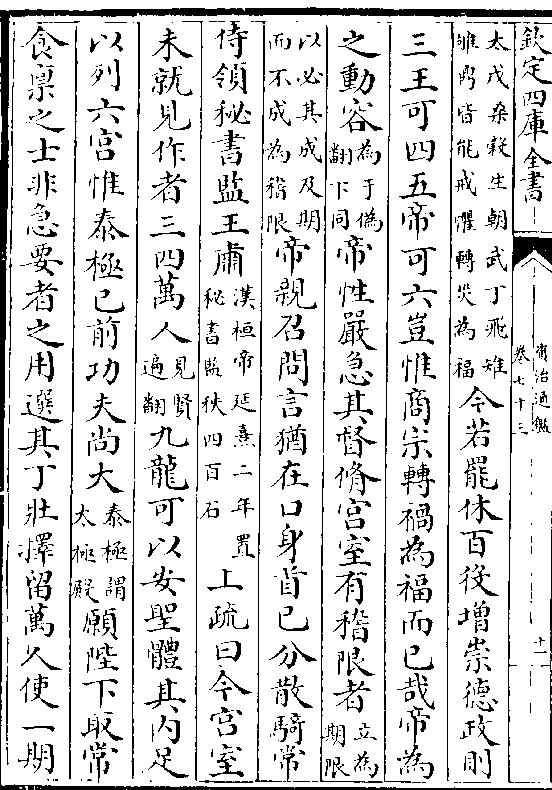 欽定四庫全書
資治通鑑
卷七十三
十一
太戊桑穀生朝武丁飛雉
雊鼎皆能戒懼轉災為福
今若罷休百役增崇德政則
三王可四五帝可六豈惟商宗轉禍為福而已哉帝為
之動容
為于偽
翻下同
帝性嚴急其督脩宮室有稽限者
立為
期限
以必其成及期
而不成為稽限
帝親召問言猶在口身首已分散騎常
侍領秘書監王肅
漢桓帝延熹二年置
秘書監秩四百石
上疏曰今宮室
未就見作者三四萬人
見賢
遍翻
九龍可以安聖體其内足
以列六宮惟泰極已前功夫尚大
泰極謂
太極殿
願陛下取常
食廩之士非急要者之用選其丁壯擇留萬人使一期